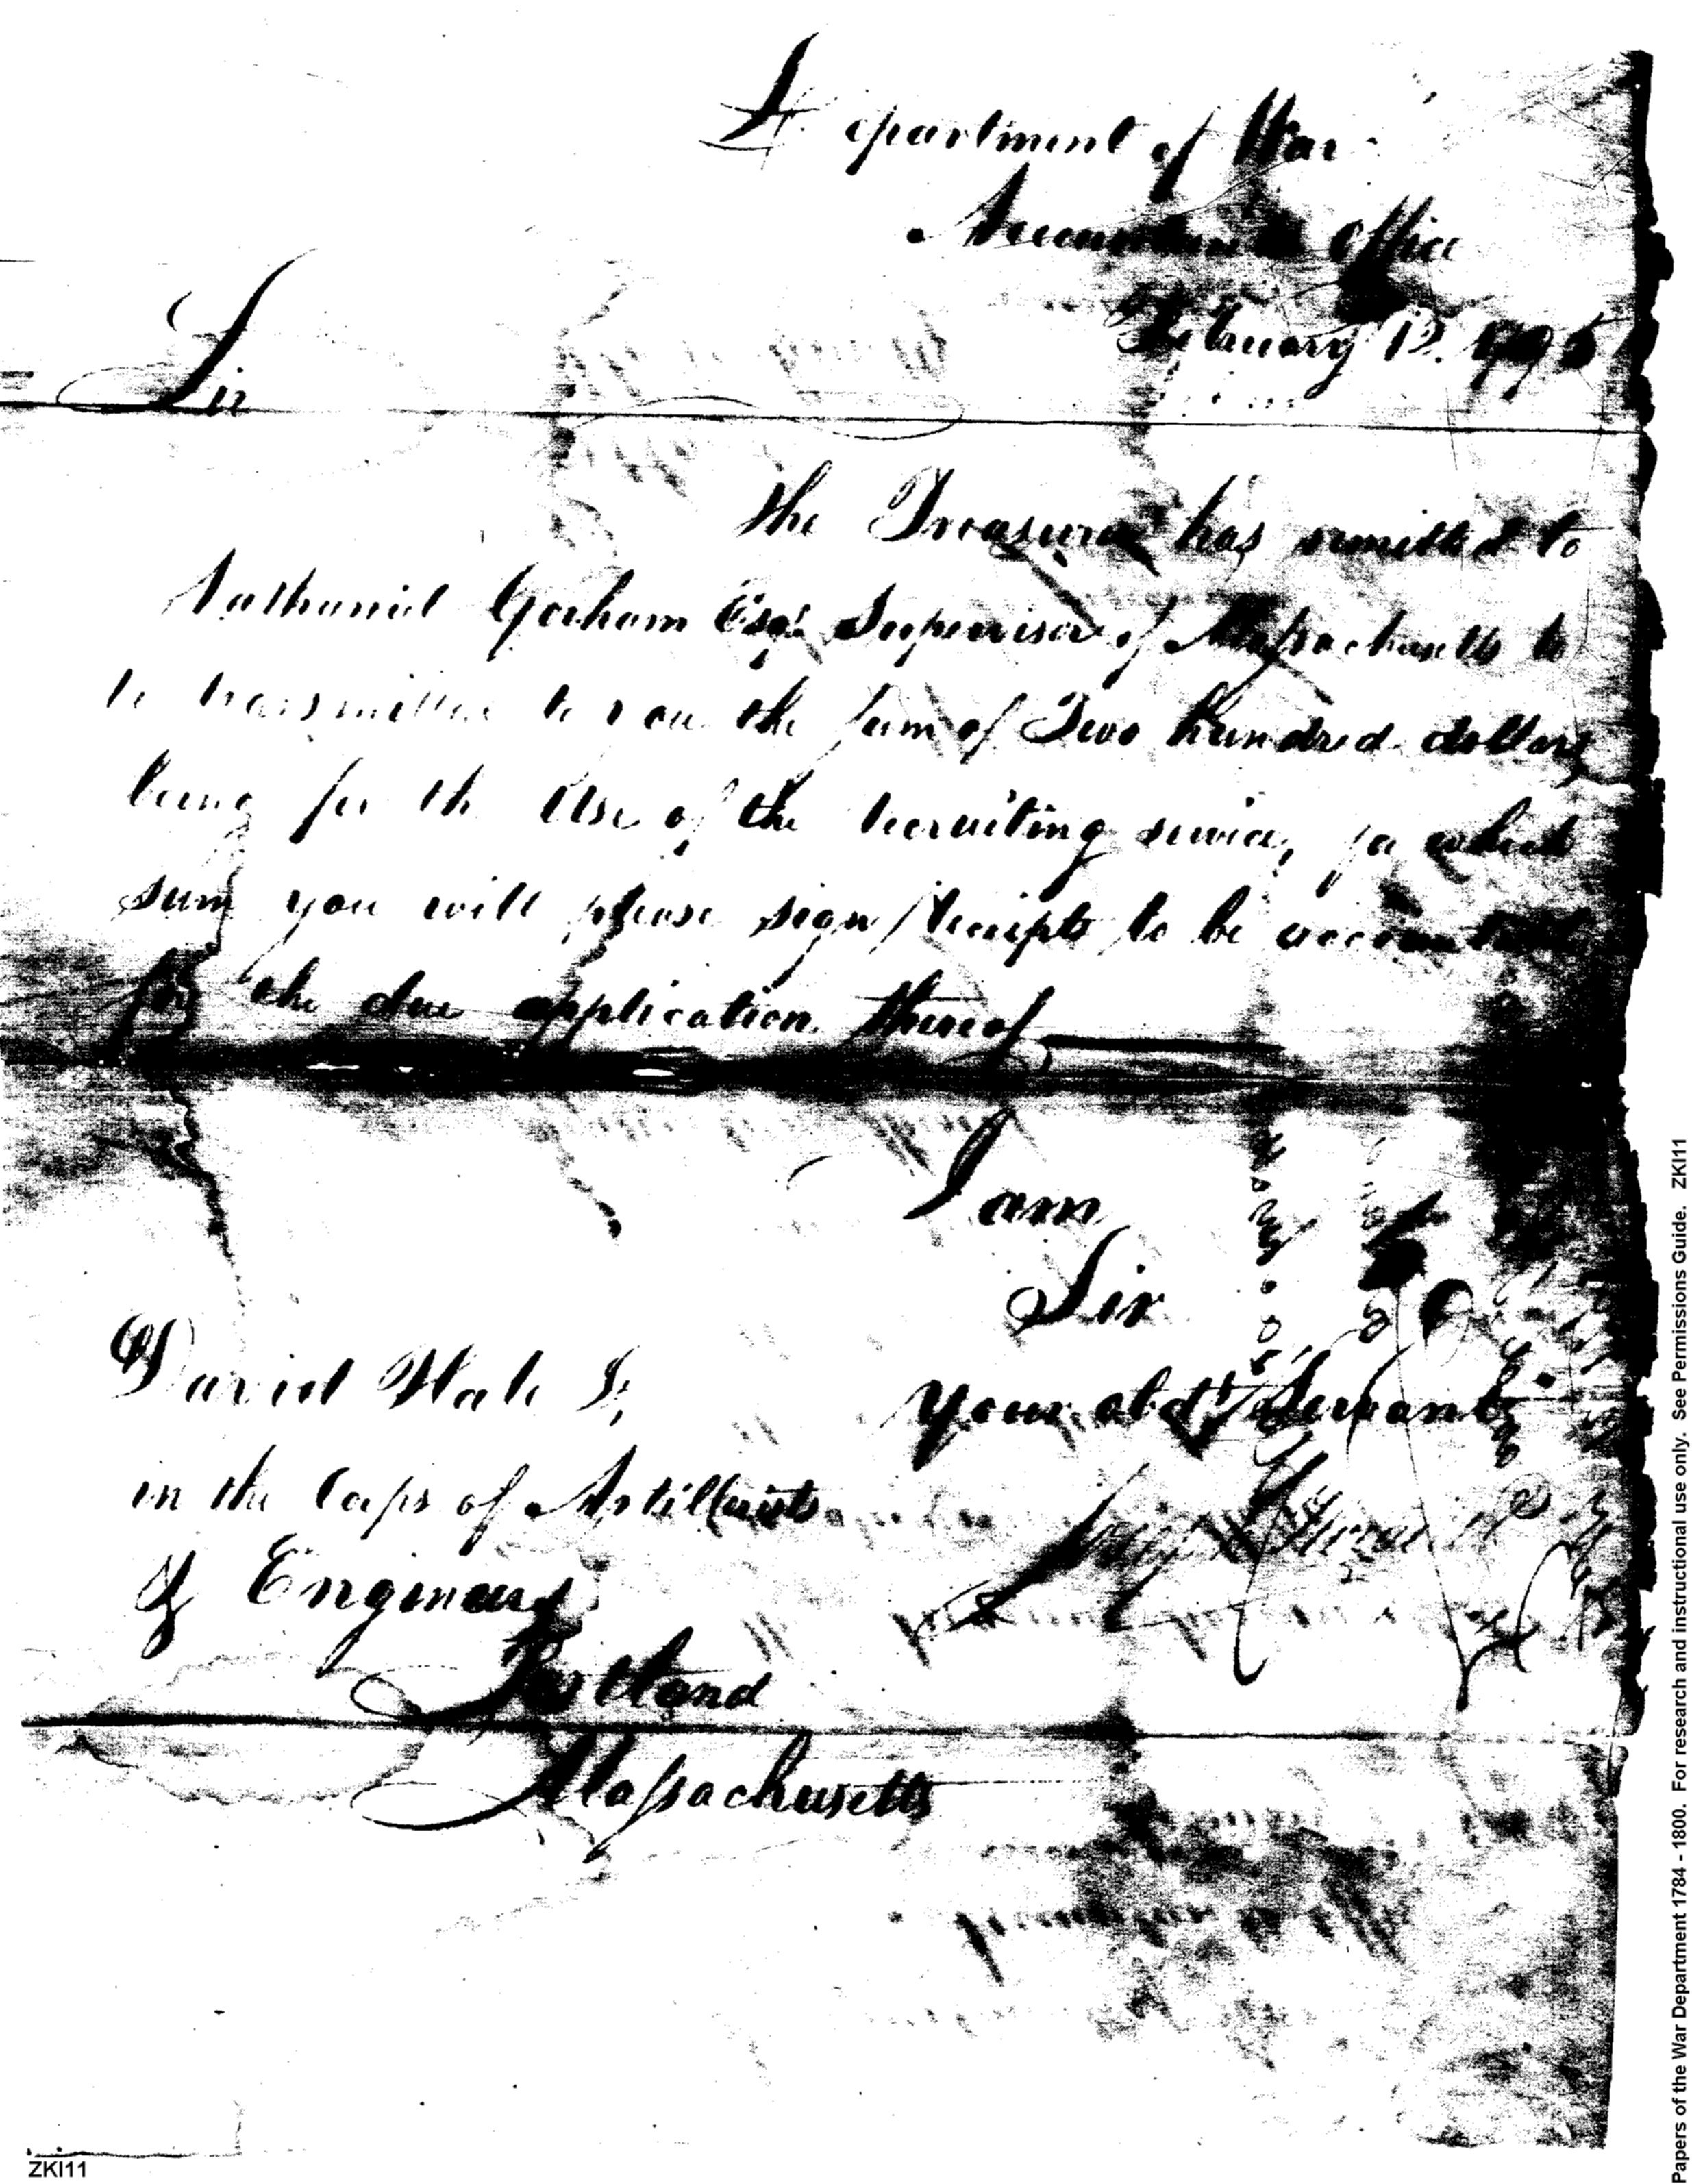 Department of War
Accountants Office
February 12. 1795
Sir
the Treasurer has remitted to
Nathaniel Gorham Esqr. Supervisor of Massachusetts to
be transmitted to you the sum of Two hundred dollars
being for the Use of the recruiting service, for which
sum you will please sign receipts to be accountable
for the due application thereof
I am
Sir
your obdt. Servant
David Hale
in the Corps of Artillerists
& Engineers
Portland
Massachusetts
ZKI11
Papers of the War Department 1784 - 1800. For research and instructional use only. See Permissions Guide. ZKI11